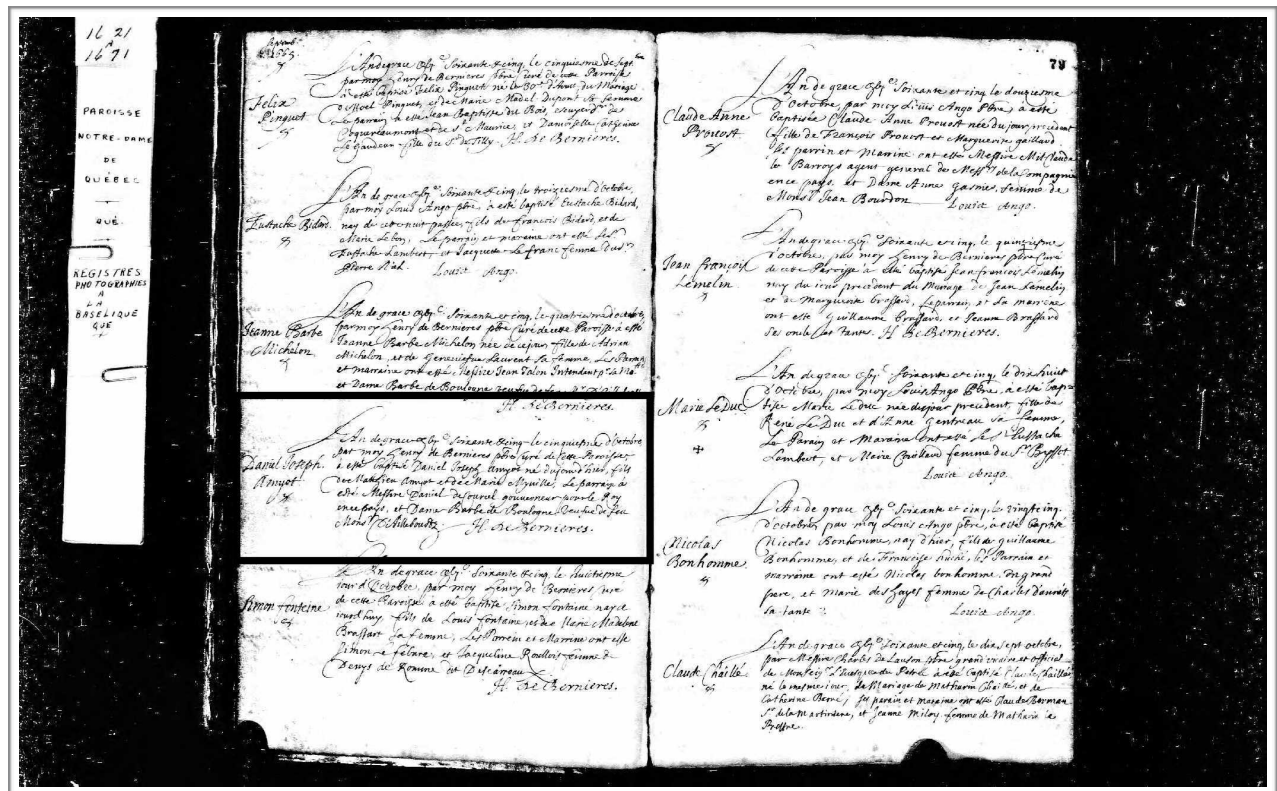 16 21
A
1671
PAROISSE
NOTRE-DAME
DE
QUÉBEC
QUÉ.
REGISTRES
PHOTOGRAPHIÉS
A
LA
BASELIQUE
QUE
1665
Felix
Pinguet
L'An de grace Soixante & cinq, le cinquiesme de Sept
par moy Henry de Bernieres pbre curé de cette Parroisse
à esté baptisé Felix Pinguet né le du Mariage
de Noel Pinguet, et de Marie Madel. Dupont sa femme
Le parrain a esté Jean Baptiste du Bois, Escuyer Sr. de
et de S. Maurice, et Damoiselle Catherine
Le Gardeur fille du Sr. de Tilly. H. de Bernieres.
Eustache Bidard.
L'An de grace Soixante & cinq, le troiziesme d'octobre,
par moy Louis Ango pbre, à esté baptisé Eustache Bidard,
nay de cette nuit passée, fils de François Bidard, et de
Marie Lebon, Le parrain et maraine ont esté
Eustache Lambert, et Jacquette Le franc femme du Sr.
Pierre Nal. Louis Ango.
Jeanne Barbe
Michelon
L'An de grace Soixante et cinq, le quatriesme d'octobre,
par moy Henry de Bernieres pbre curé de cette Paroisse à esté
Jeanne Barbe Michelon née de ce jour, fille de Adrian
Michelon, et de Geneviefve Laurent sa femme, Les Parrain
et marraine ont esté Messire Jean Talon Intendent pr. Sa Ma
et Dame Barbe de Boulogne veufve de feu
H. de Bernieres.
Daniel Joseph
Amyot
L'An de grace Soixante & cinq le cinquiesme d'Octobre
par moy Henry de Bernieres pbre curé de cette Paroisse
à esté baptisé Daniel Joseph Amyot né du jourd'hier, fils
de Mathieu Amyot et de Marie Myville, Le parrain à
esté Messire Daniel de gouverneur pour le Roy
en ce pays, et Dame Barbe de Boulogne veufue de feu
Mons. D'Ailleboust. H. de Bernieres.
Simon fonteine
L'An de grace Soixante et cinq, le huictiesme
jour d'Octobre, par moy Henry de Bernieres curé
de cette Paroisse à esté baptisé Simon fontaine nay de
jourd'huy, fils de Louis fontaine, et de Marie Madelene
Brassart sa femme, Les Parrein et Marrine ont esté
Simon le febvre, et Jacqueline Roullois femme de
Denys de Romme dit Descarreau
H. de Bernieres.
79
Claude Anne
Prouost
L'An de grace Soixante et cinq, le douziesme
d'Octobre, par moy Louis Ango Pbre, à esté
baptisée Claude Anne Prouost née du jour precedent
fille de François Prouost et Marguerite gaillard
Les parrin et Marrine ont esté Messire Mil Claude
le Barroys agent general de Messrs. de la Compagnie
en ce pays, et Dame Anne gasnier, femme de
Monsr. Jean Bourdon Louis Ango.
Jean françois
Lemelin.
L'An de grace Soixante et cinq, le quinziesme
d'octobre, par moy Henry de Bernieres pbre Curé
de cette Paroisse à esté baptisé Jean francois Lemelin
nay du iour precedent du Mariage de Jean Lemelin
et de Marguerite Brassard, Le parrain, et La marrine
ont esté Guillaume Brassard, et Jeanne Brassard
ses oncle et tante. H. de Bernieres.
Marie Le Duc
L'An de grace Soixante et cinq, le dix huict
d'Octobre, par moy Louis Ango Pbre, à esté bap
tisée Marie Le Duc née du jour precedent, fille de
René Le Duc et d'Anne Gentreau sa femme
Le Parain et Maraine ont esté le Sr. Eustache
Lambert, et Marie Couillard femme du Sr. Byssot
Louis Ango.
Nicolas
Bonhomme.
L'An de grace Soixante et cinq, le vingt cinq
d'octobre, par moy Louis Ango pbre, à esté baptisé
Nicolas Bonhomme, nay d'hier, fils de guillaume
Bonhomme, et de Françoise haché, Les Parrain et
marraine ont esté Nicolas bonhomme, son grand
pere, et Marie des hayes femme de Charles
sa tante Louis Ango.
Claude Chaillé.
L'An de grace Soixante et cinq, le dix sept octobre,
par Messire Charles de Lauson pbre grand vicaire et official
de Monseigr. L'Evesque de Petrée à esté baptisé Claude Chaillé
né le mesme jour, du Mariage de Mathurin Chaillé, et de
Catherine Barré, les parain et maraine ont esté Claude Berman
Sr. de la Martiniere, et Jeanne Miloy femme de Mathurin la
Prestre.